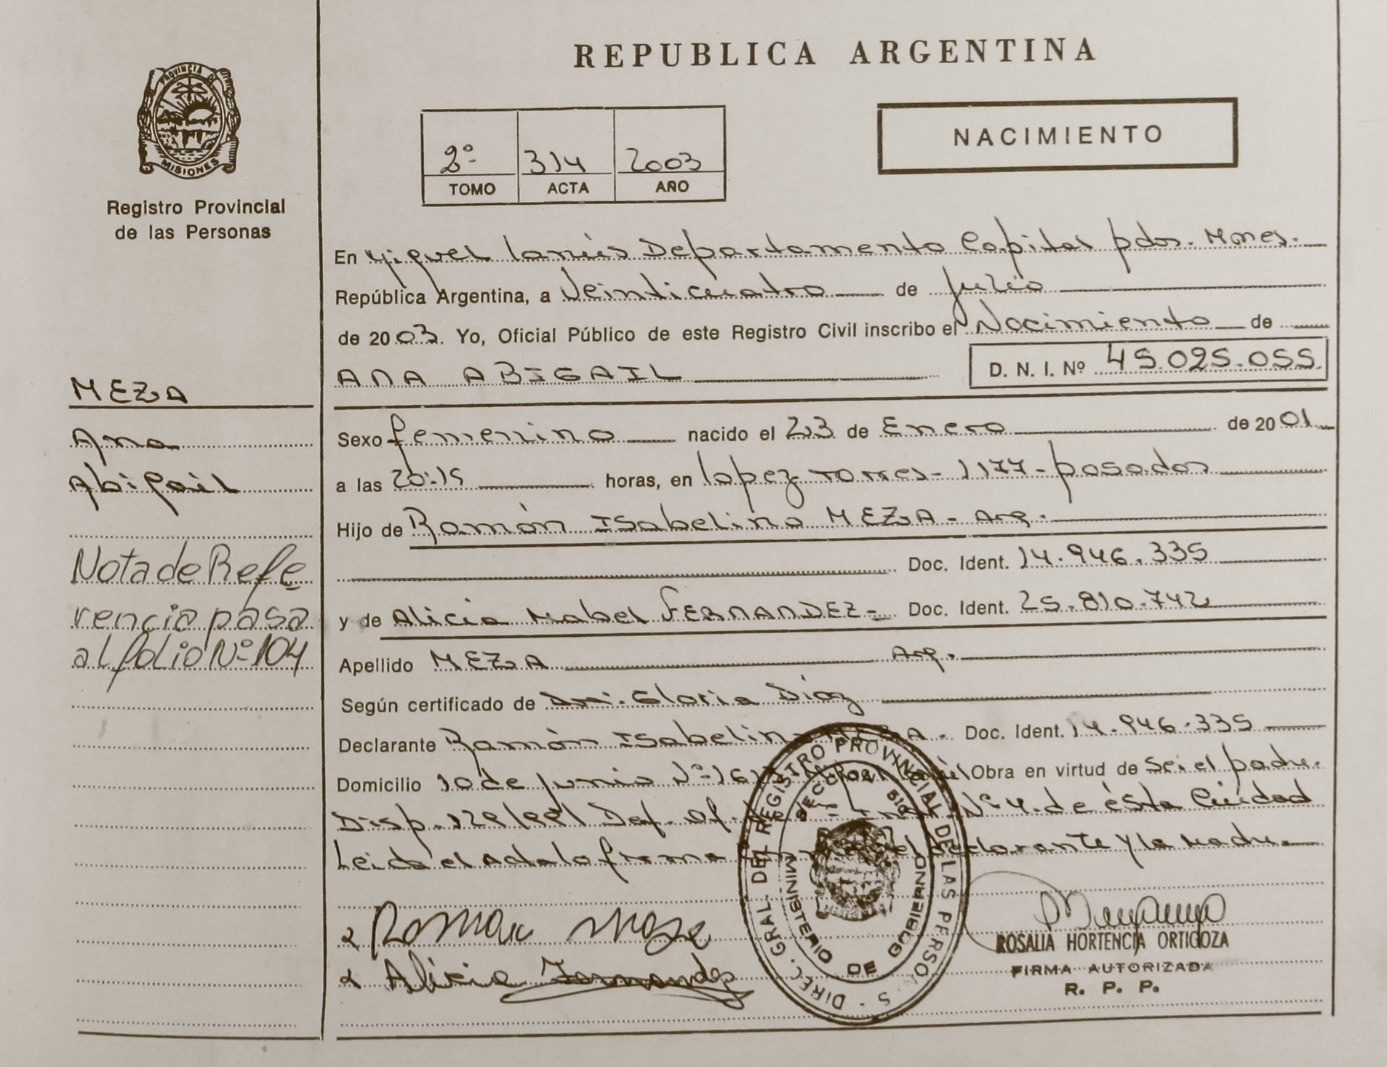 REPUBLICA ARGENTINA
PROVINCIA DE
MISIONES
Registro Provincial
de las Personas
NACIMIENTO
2º 314 2003
TOMO ACTA AÑO
En Miguel Lanús Departamento Capital pdas. Mnes.
República Argentina, a Veinticuatro de Julio
de 2003. Yo, Oficial Público de este Registro Civil inscribo el Nacimiento de
ANA ABIGAIL D. N. I. Nº 45.025.055
MEZA
Ana
Abigail
Nota de Refe
rencia pasa
al folio Nº 104
Sexo femenino nacido el 23 de Enero de 2001
a las 20:15 horas, en Lopez Torres - 1177 - posadas
Hijo de Ramón Isabelino MEZA - Arg.
Doc. Ident. 14.946.335
y de Alicia Mabel FERNANDEZ - Doc. Ident. 25.810.742
Apellido MEZA Arg.
Según certificado de Gloria Díaz
Declarante Ramón Isabelino MEZA - Doc. Ident. 14.946.335
Domicilio 10 de Junio Obra en virtud de Ser el padre.
Disp. Nº 4 de ésta Ciudad
Leida el Acta la firma el declarante y la Madre
Ramon Meza
Alicia Fernandez
DIREC. GRAL. DEL REGISTRO PROVINCIAL DE LAS PERSONAS
MINISTERIO DE GOBIERNO
ROSALIA HORTENCIA ORTIGOZA
FIRMA AUTORIZADA
R. P. P.